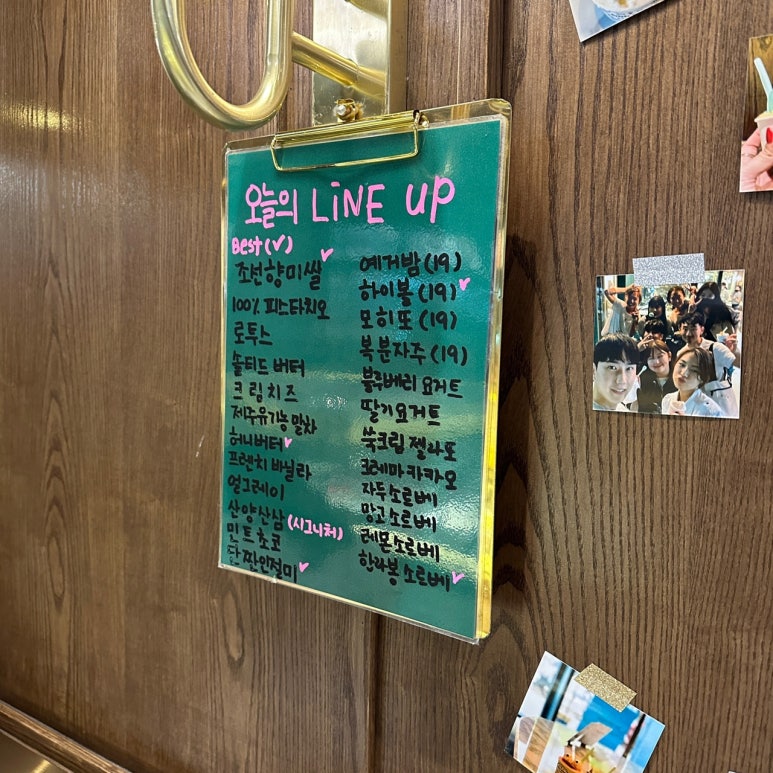 오늘의 LiNE UP
Best (✓)
조선향미쌀 ✓
100% 피스타치오
로투스
솔티드 버터
크림치즈
제주유기농말차
허니버터 ✓
프렌치 바닐라
얼그레이
산양산삼 (시그니처)
민트초코
단짠인절미 ✓
예거밤 (19)
하이볼 (19) ✓
모히또 (19)
복분자주 (19)
블루베리 요거트
딸기요거트
쑥크림 젤라또
크레마 카카오
자두소르베
망고소르베
레몬소르베
한라봉 소르베 ✓